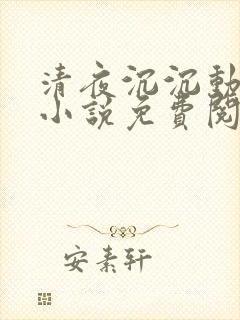 清夜沉沉動
小說免費閱
安素轩